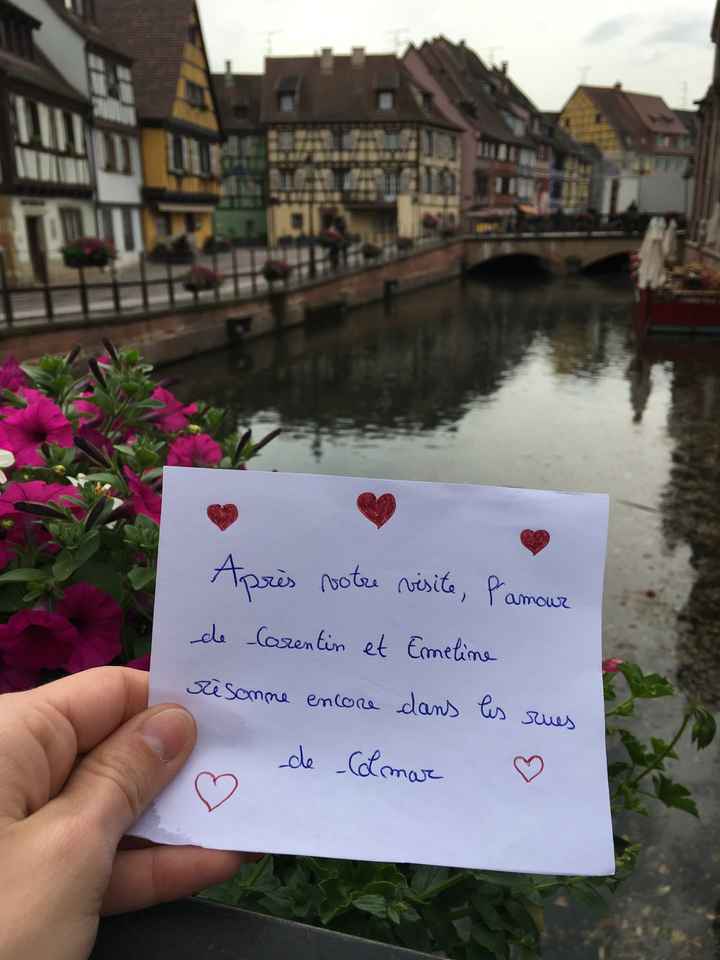 Après votre visite, l'amour
de Corentin et Emeline
résonne encore dans les rues
de Colmar